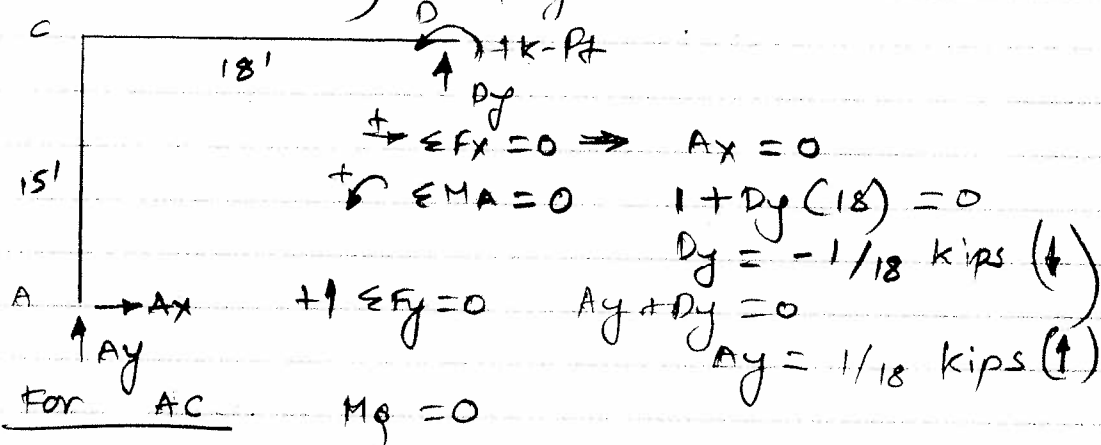 C
D
1 k-ft
18'
Dy
+→ ΣFx = 0 ⇒ Ax = 0
15'
+ ΣMA = 0 1 + Dy (18) = 0
Dy = -1/18 kips (↓)
A → Ax +↑ ΣFy = 0 Ay + Dy = 0
↑ Ay Ay = 1/18 kips (↑)
For AC Mq = 0